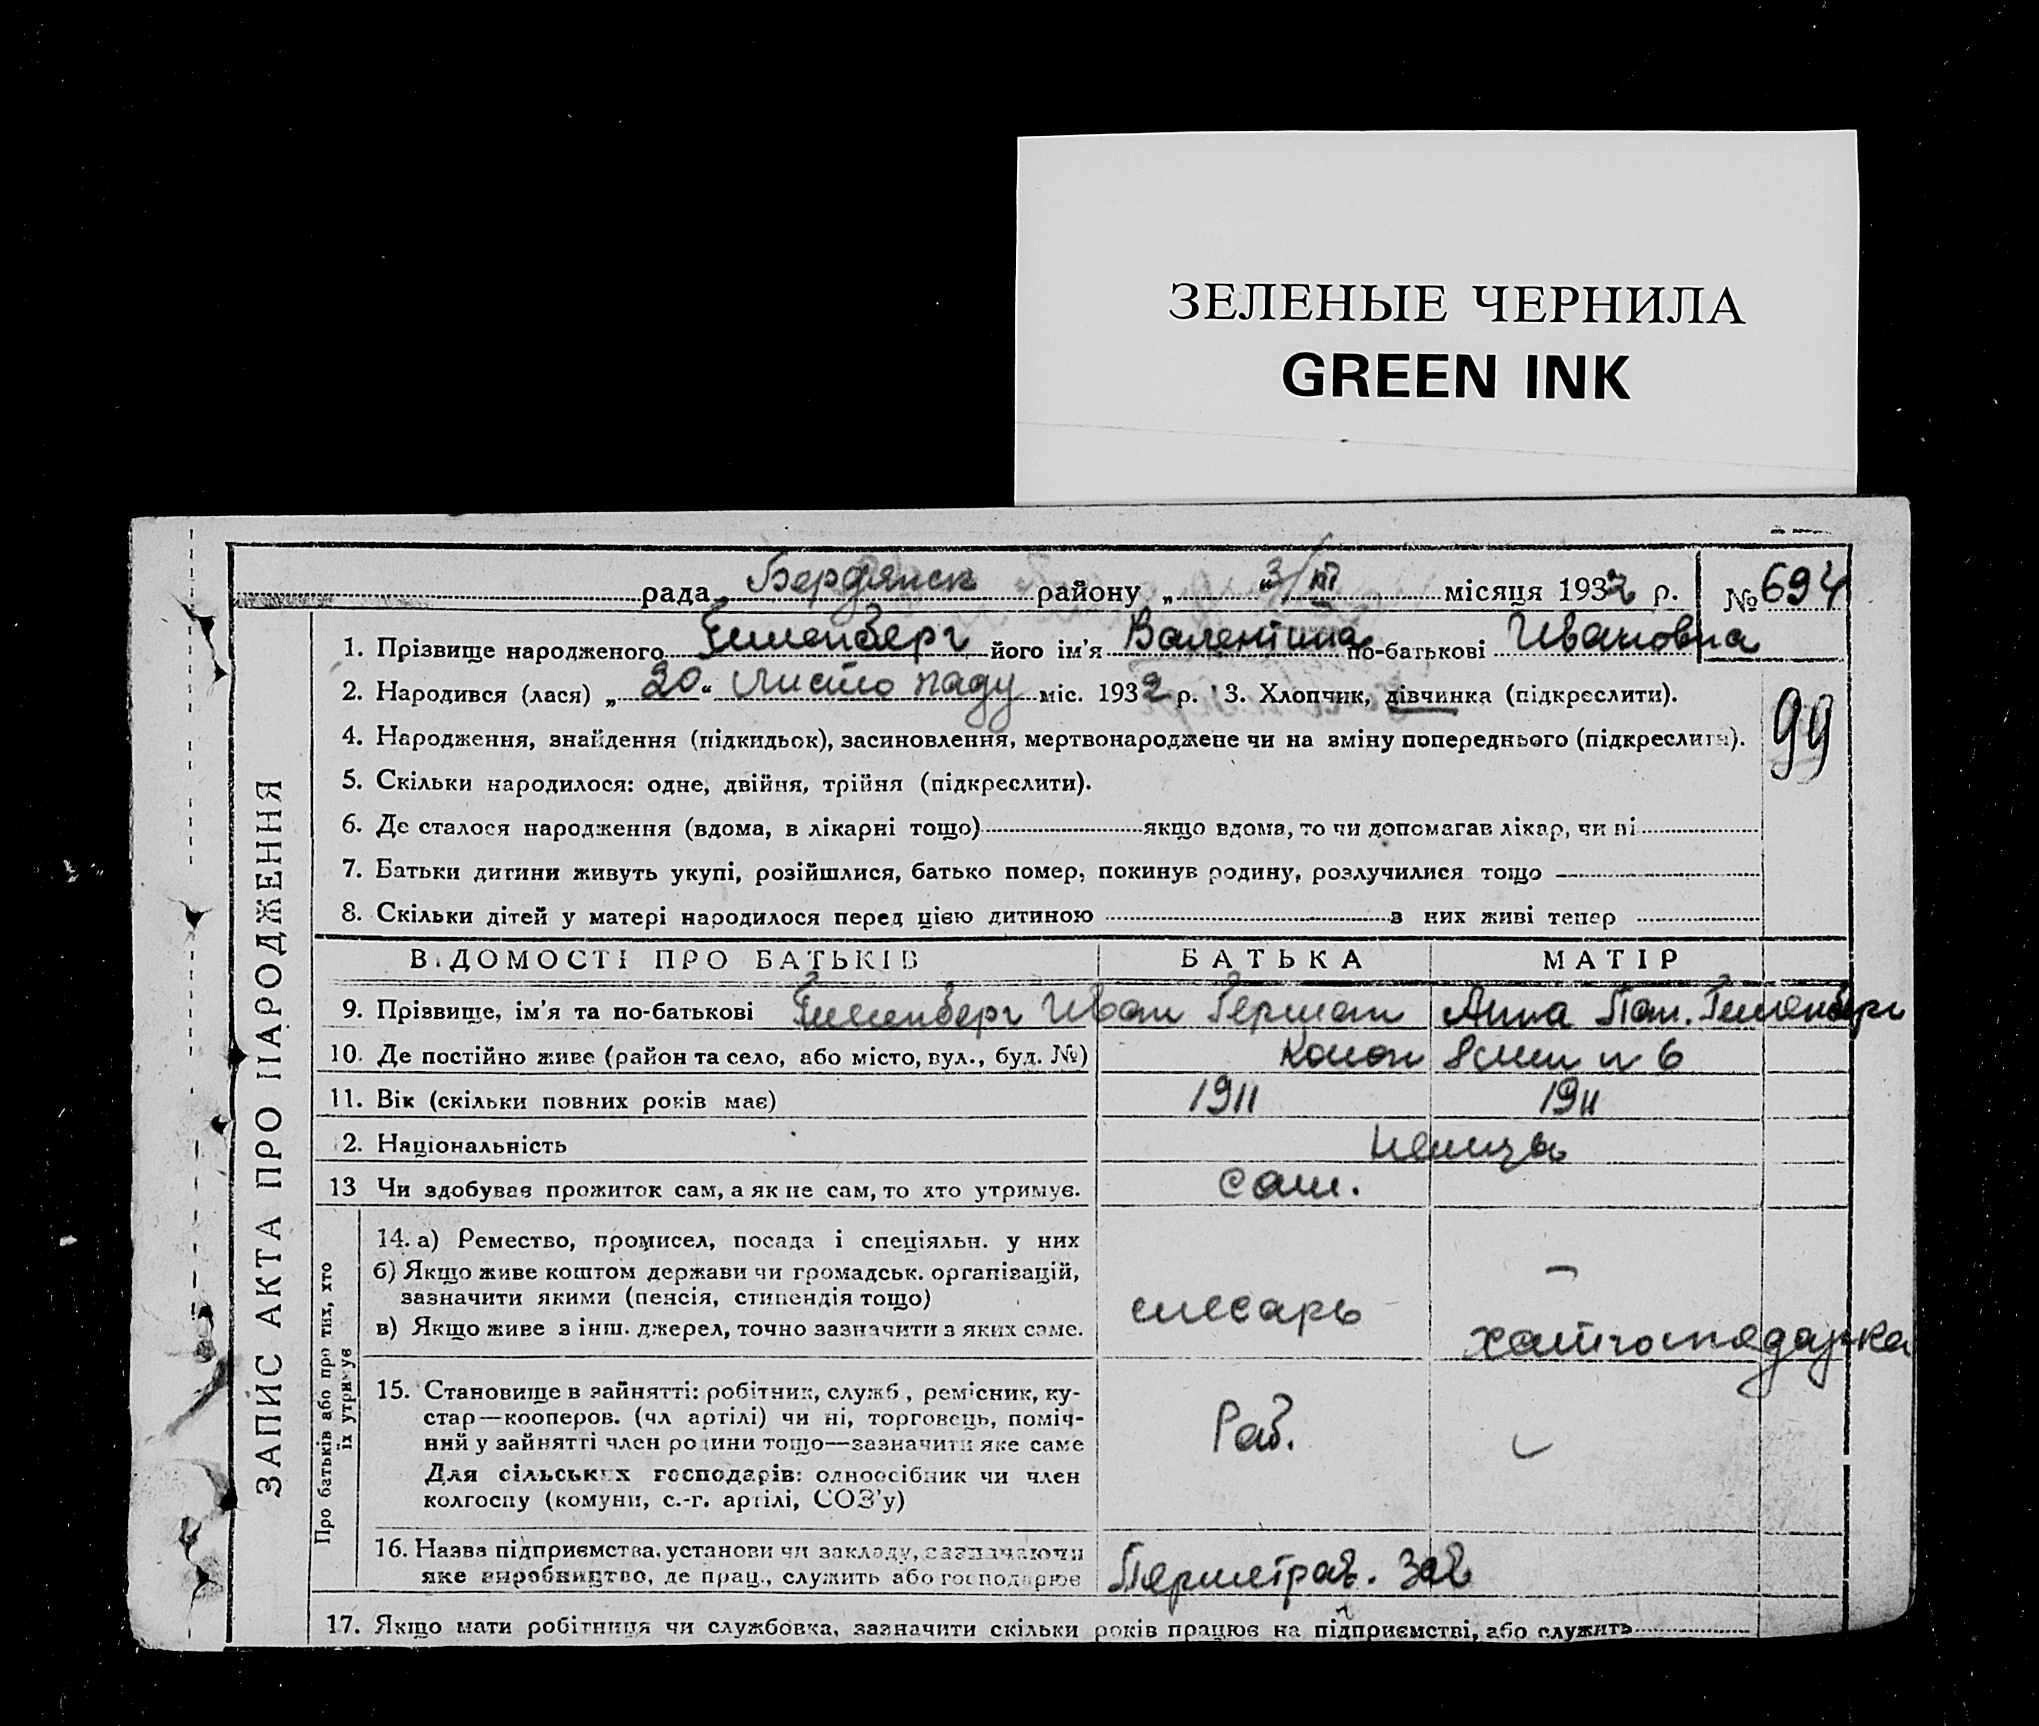 ЗЕЛЕНЫЕ ЧЕРНИЛА
GREEN INK
рада Бердянск району „ " 3/III місяця 1932 р. № 694
1. Прізвище народженого його ім'я Валентина по-батькові Ивановна
2. Народився (лася) „ 20 " Листопаду міс. 1932 р. 3. Хлопчик, дівчинка (підкреслити).
99
4. Народження, знайдення (підкидьок), засиновлення, мертвонароджене чи на зміну попереднього (підкреслити).
5. Скільки народилося: одне, двійня, трійня (підкреслити).
6. Де сталося народження (вдома, в лікарні тощо) якщо вдома, то чи допомагав лікар, чи ні
7. Батьки дитини живуть укупі, розійшлися, батько помер, покинув родину, розлучилися тощо
8. Скільки дітей у матері народилося перед цією дитиною з них живі тепер
ЗАПИС АКТА ПРО НАРОДЖЕННЯ
ВІДОМОСТІ ПРО БАТЬКІВ БАТЬКА МАТІР
9. Прізвище, ім'я та по-батькові Иван Герман Анна
10. Де постійно живе (район та село, або місто, вул., буд. №) 6
11. Вік (скільки повних років має) 1911 1911
2. Національність немцы
13 Чи здобував прожиток сам, а як не сам, то хто утримує. сам.
Про батьків або про тих, хто їх утримує
14. а) Ремество, промисел, посада і спеціяльн. у них
б) Якщо живе коштом держави чи громадськ. організацій,
зазначити якими (пенсія, стипендія тощо)
в) Якщо живе з інш. джерел, точно зазначити з яких саме.
слесарь
хатгосподарка
15. Становище в зайнятті: робітник, служб., ремісник, ку-
стар—кооперов. (чл артілі) чи ні, торговець, поміч-
ний у зайнятті член родини тощо—зазначити яке саме
Раб.
Для сільських господарів: одноосібник чи член
колгоспу (комуни, с.-г. артілі, СОЗ'у)
16. Назва підприємства, установи чи закладу, зазначаючи
яке виробництво, де прац., служить або господарює Первметрав. Зав
17. Якщо мати робітниця чи службовка, зазначити скільки років працює на підприємстві, або служить